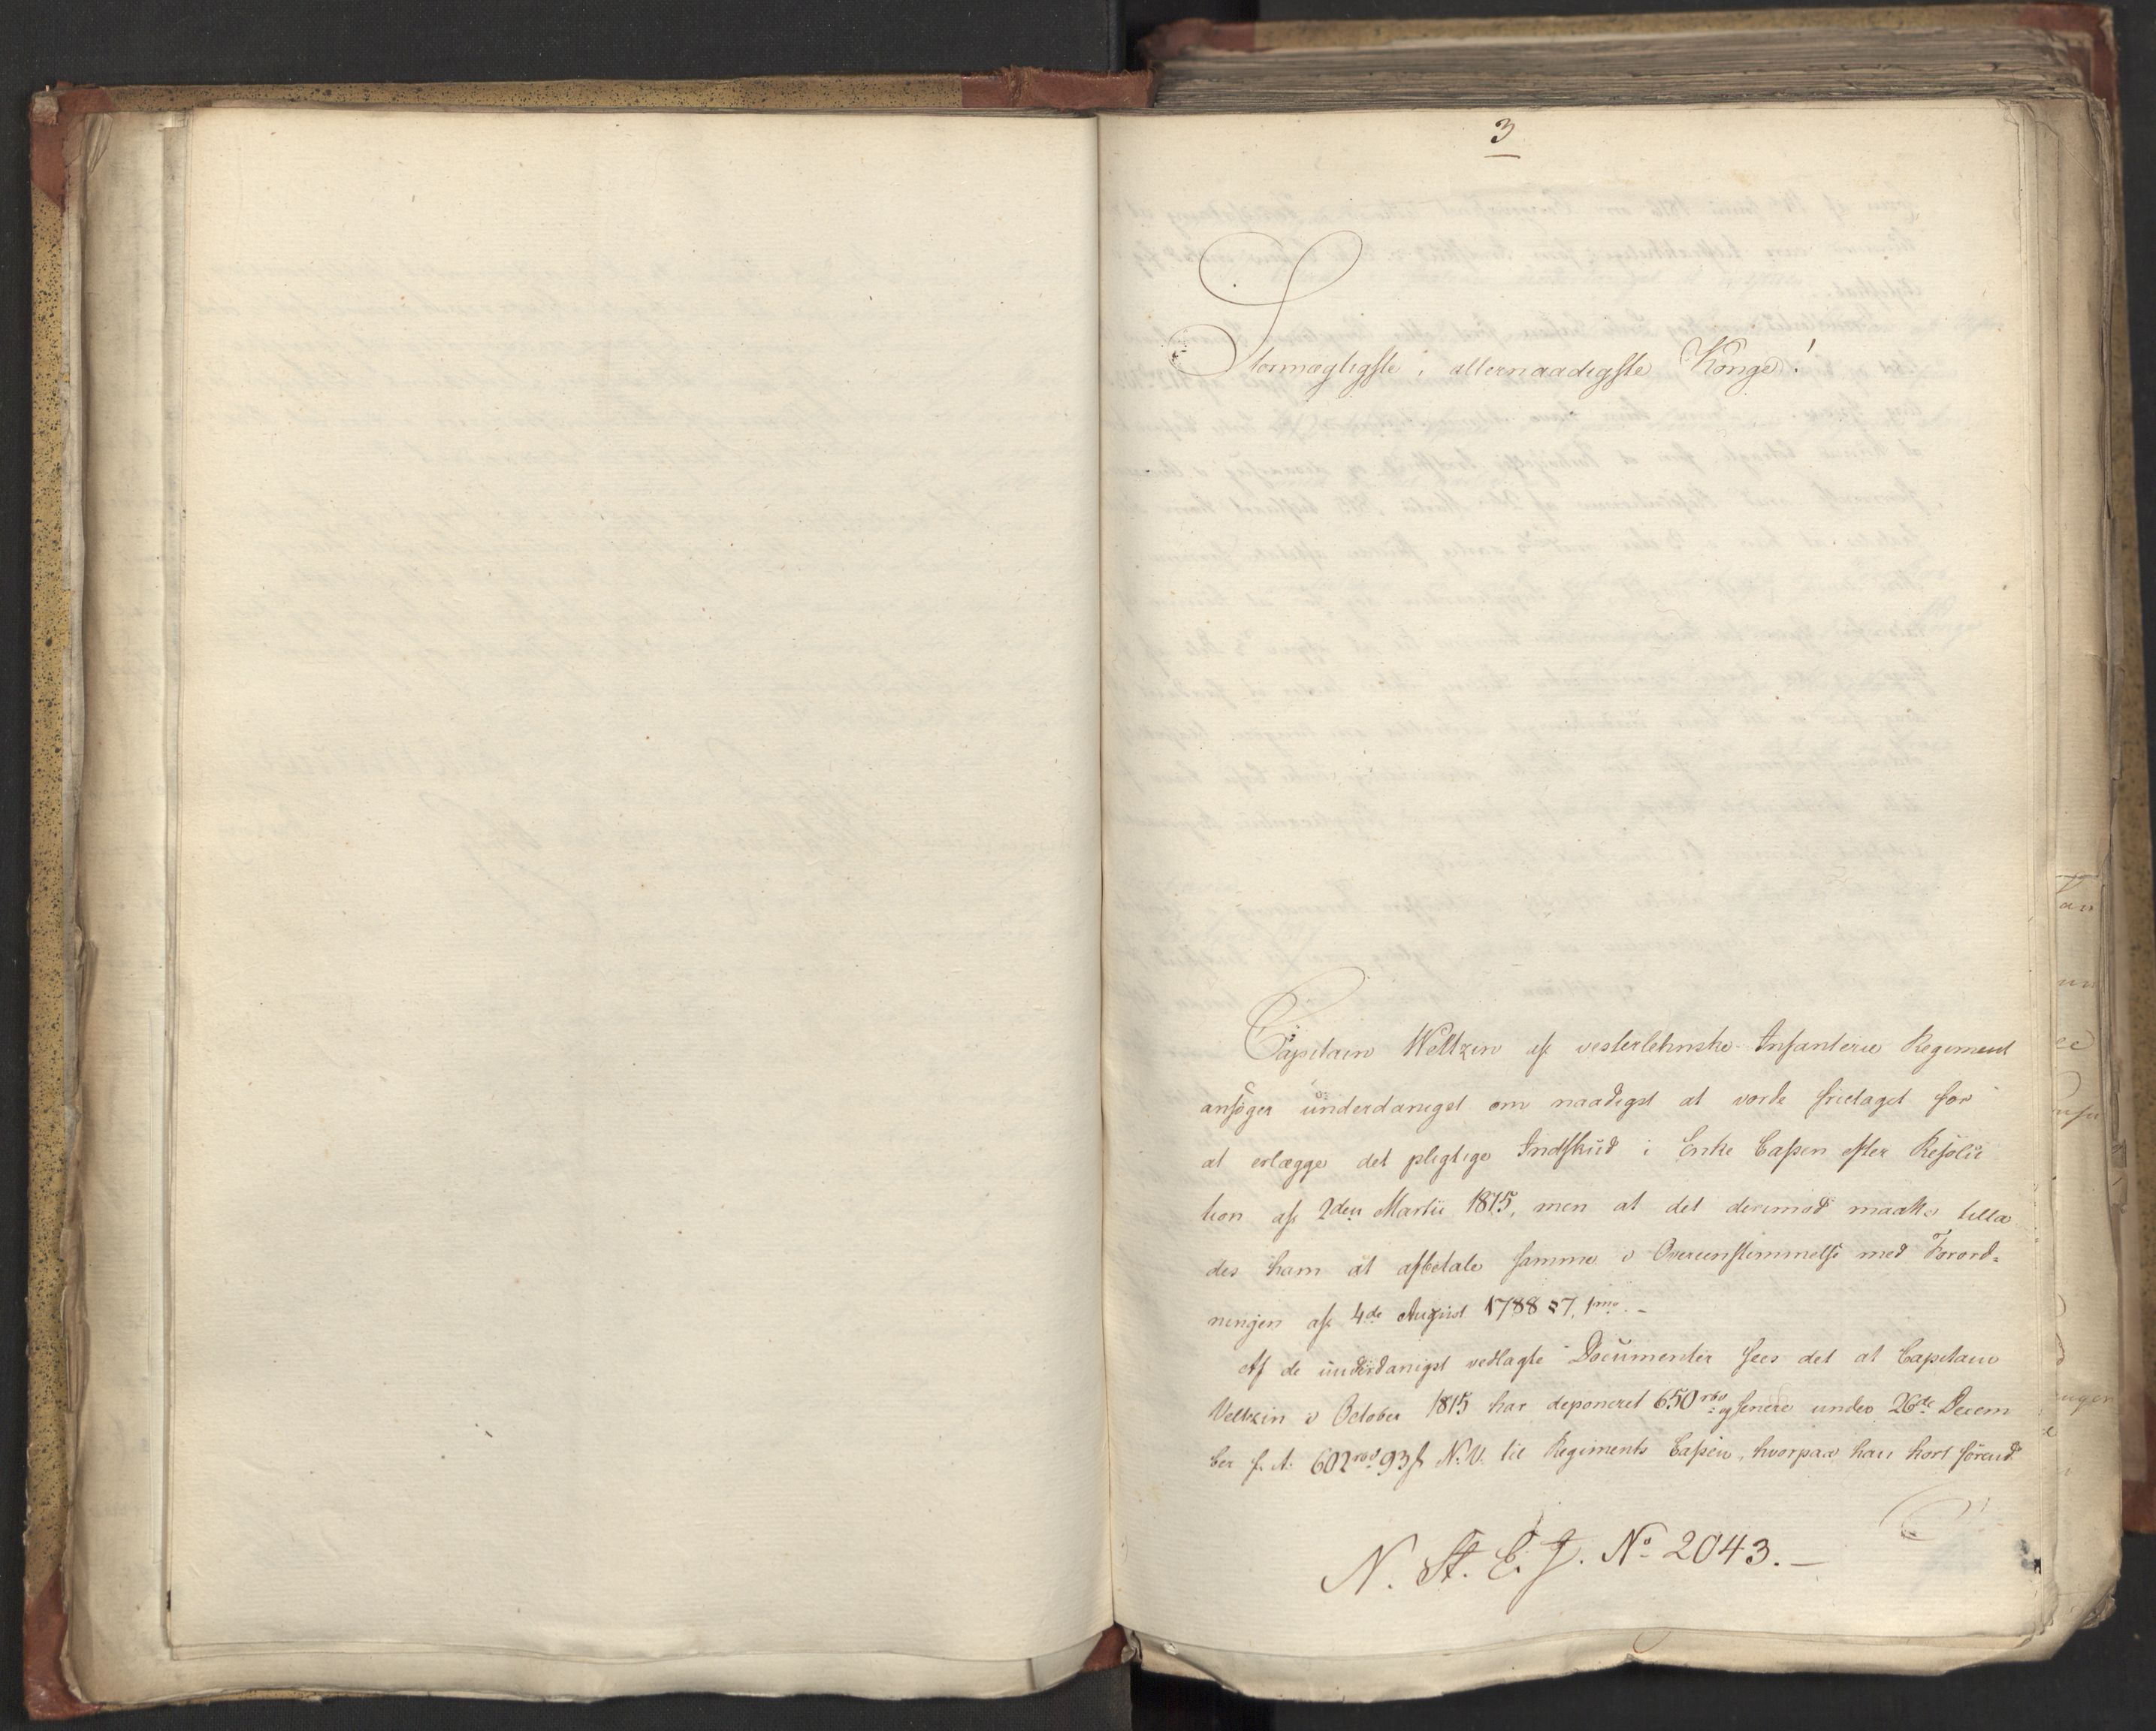 3
Stormægtigste, allernaadigste Konge!
Capitain Weltzin af vesterlehnske Infanterie Regiment
ansøger underdanigst om naadigst at vorde frietaget for
at erlægge det pligtige Indskud i Enke Cassen efter Resolu
tion af 2den Martii 1815, men at det derimod maatte tilla
des ham at afbetale samme i Overeensstemmelse med Forord=
ningen af 4de August 1788 §7, 1mo. -
Af de underdanigst vedlagte Documenter sees det at Capitain
Veltzin i October 1815 har deponeret 650 rbd og senere under 26de Decem
ber s. A. 602 rbd 93 s N.V. til Regiments Cassen, hvorpaa han kort førend
N. St. E. J. No 2043. -